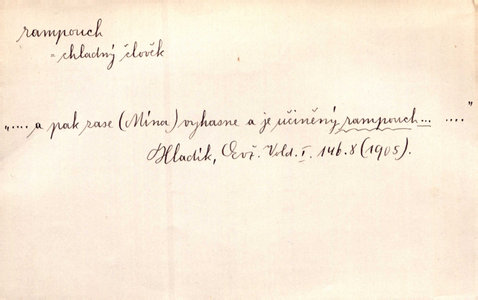 rampouch
= chladný člověk
„.... a pak zase (Mína) vyhasne a je učiněný rampouch... ...."
Hladík, Evž. Vold. I. 146.8 (1905).